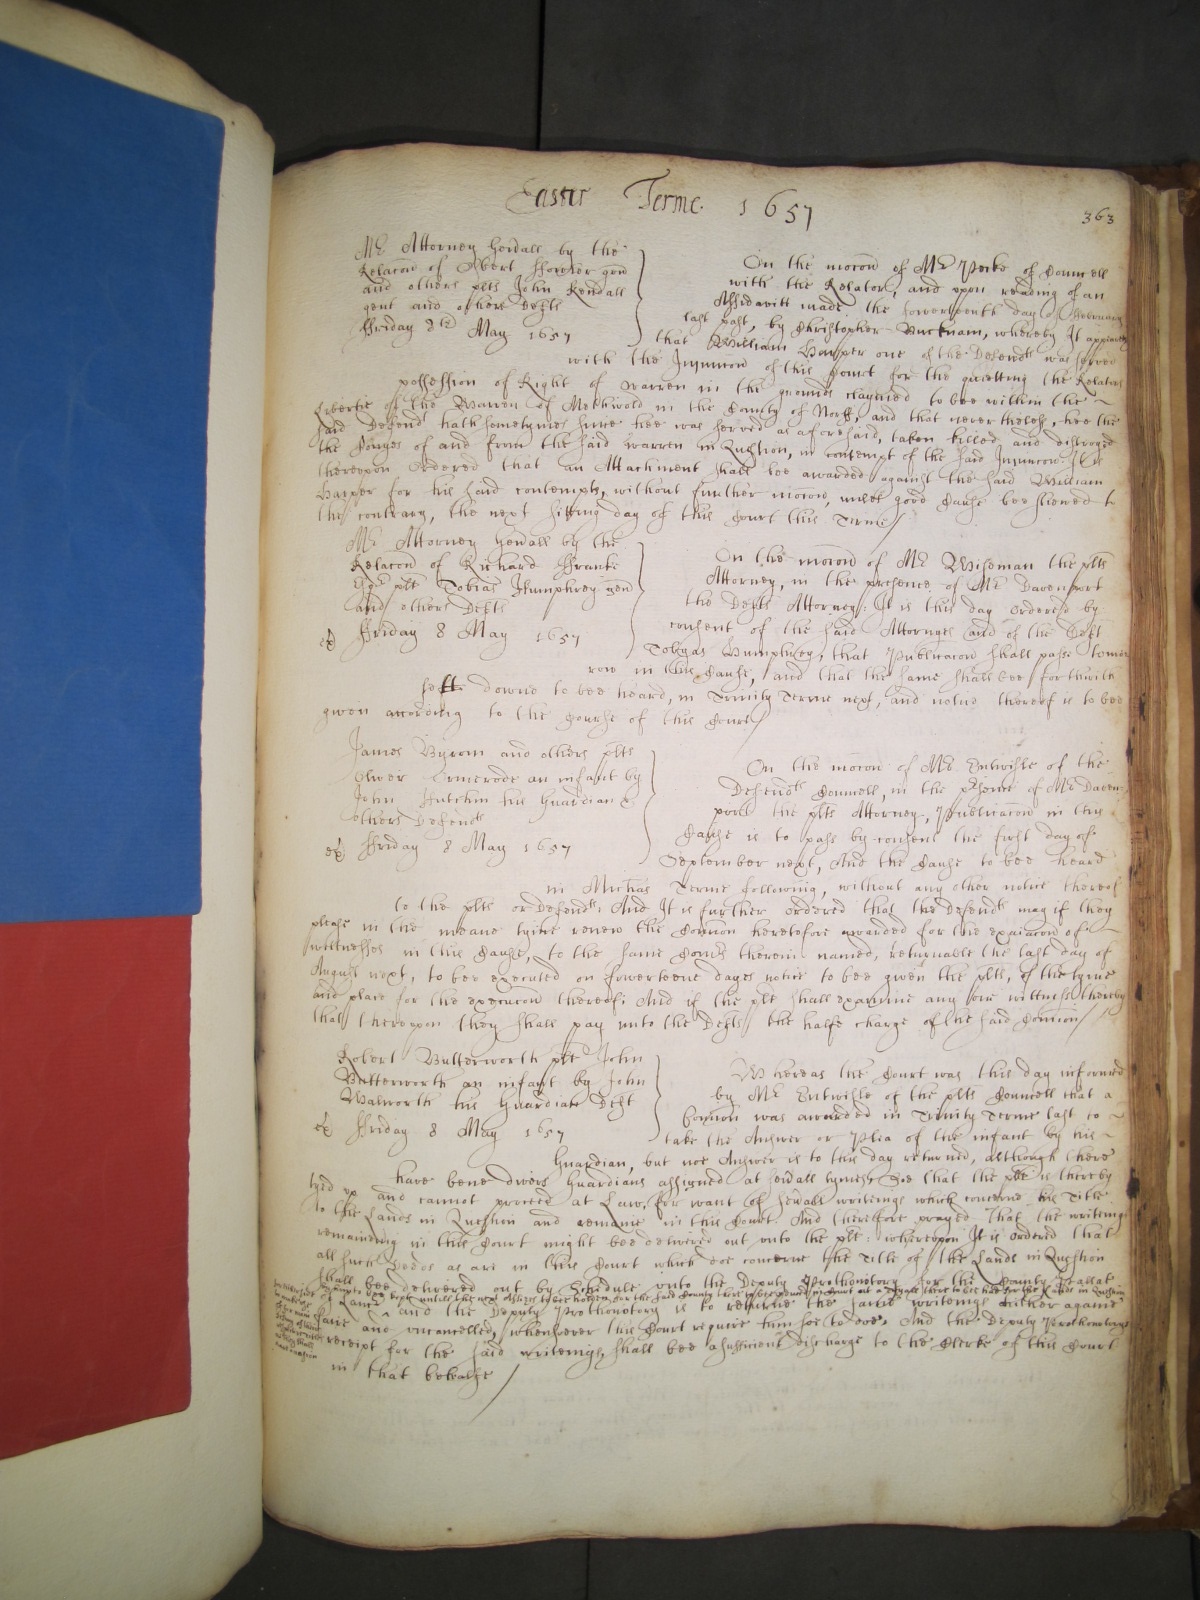 Easter Terme. 1657
363
Mr Attorney Genrall by the
Relacon of Robert gen
and others plts John Kendall
gent and others Defts
Ffriday 8th May 1657
On the mocon of Mr Pecke of Councell
with the Relator, and upon reading of an
Affidavitt made the fowerteenth day of February
last past, by Christopher Bucknam, whereby It appeareth
that William Harper one of the Defendts was served
with the Injunccon of this Court for the quietting the Relators
possession of Right of warren in the grounds claymed to bee within the
libertie of the Warren of Methwold in the County of Norff, and that nevertheless, hee the
said Defendt hath sometymes since hee was served as aforesaid, taken killed and distroyed
the Conyes of and from the said warren in Question, in contempt of the said Injunccon It is
thereupon Ordered that an Attachment shall bee awarded against the said William
Harper for his said contempts, without further mocon, unles good Cause bee shewed to
the contrary, the next sitting day of this Court this Terme
Mr Attorney Genrall by the
Relacon of Richard Ffranke
plt Tobias Humphrey gen
and others Defts
ex Ffriday 8 May 1657
On the mocon of Mr Wiseman the plts
Attorney, in the presence of Mr Davenport
the Defts Attorney: It is this day ordered by
consent of the said Attornyes and of the Deft
Tobyas Humphrey, that Publicacon shall passe tomor
row in this Cause, and that the same shall bee forthwith
sett downe to bee heard, in Trinity Terme next, and notice thereof is to bee
given according to the Course of this Court
James Byrom and others plts
Oliver Ormerode an infant by
John Hutchin his Guardian &
others Defendts
ex Ffriday 8 May 1657
On the mocon of Mr Entwisle of the
Defendts Councell, in the psence of Mr Daven
port the plts Attorney, Publicacon in this
Cause is to pass by consent the first day of
September next, And the Cause to bee heard
in Michas Terme following, without any other notice thereof
to the plts or Defendts: And It is further ordered that the Defendts may if they
please in the meane tyme renew the Comion heretofore awarded for the exaiacon of
wittnesses in this Cause, to the same Comrs therein named, returnable the last day of
August next, to bee executed on fowerteene dayes notice to bee given the plts, of the tyme
and place for the execucon thereof: And if the plt shall examine any one wittness thereby
that thereupon they shall pay unto the Defts the halfe charge of the said Comion
Robert Butterworth plt John
Butterworth an infant by John
Walworth his Guardian Deft
ex Ffriday 8 May 1657
Whereas the Court was this day informed
by Mr Entwisle of the plts Councell that a
Comion was awarded in Trinity Terme last to
take the Answer or Plea of the infant by his
Guardian, but noe Answer is to this day returned, although there
have bene divers Guardians assigned at sevrall tymes, Soe that the plt is thereby
tyed up and cannot proceed at Law, for want of sevrall writeings which concerne his Title
to the Lands in Question and remaine in this Court. And therefore prayed that the writeings
remaineing in this Court might bee delivered out unto the plt: whereupon It is ordered that
all such Deeds as are in this Court which doe concerne the Title of the Lands in Question
shall bee delivered out by Schedule unto the Deputy Prothonotory for the County Pallat
to bee kept untill the next Assizes to bee holden for the said County there to bee produced in Court at a Tryall there to bee had for the Lands in Question
of Lanc and the Deputy Prothonotory is to returne the same writeings hither againe
safe and uncancelled, whensoever this Court require him soe to doe, And the Deputy Prothonotoryes
receipt for the said writeings, shall bee a sufficient discharge to the Clerke of this Court
in that behalfe